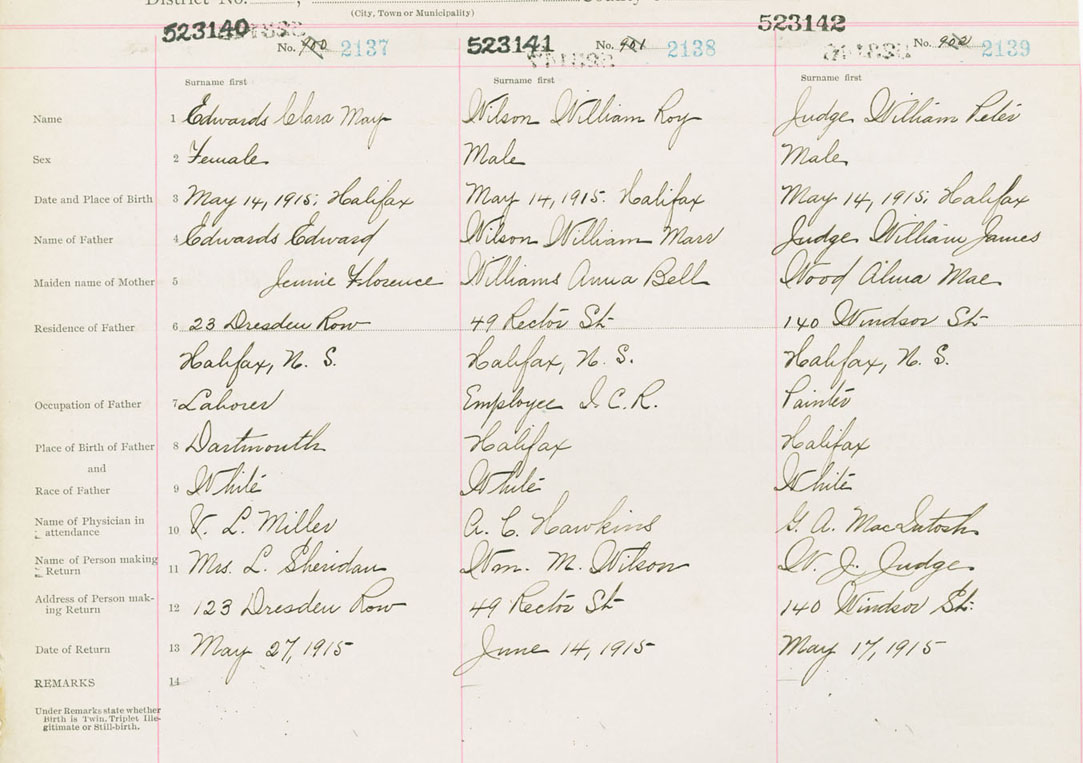 District No. , County
(City, Town or Municipality)
523140
No. 900 2137
523141
No. 901 2138
523142
No. 902 2139
Surname first Surname first Surname first
Name 1 Edwards Clara May Wilson William Roy Judge William Peter
Sex 2 Female Male Male
Date and Place of Birth 3 May 14, 1915; Halifax May 14, 1915. Halifax May 14, 1915; Halifax
Name of Father 4 Edwards Edward Wilson William Marr Judge William James
Maiden name of Mother 5 Jennie Florence Williams Anna Bell Wood Alma Mae
Residence of Father 6 23 Dresden Row 49 Rector St. 140 Windsor St.
Halifax, N. S. Halifax, N. S. Halifax, N. S.
Occupation of Father 7 Laborer Employee I.C.R. Painter
Place of Birth of Father 8 Dartmouth Halifax Halifax
and
Race of Father 9 White White White
Name of Physician in
attendance 10 V. L. Miller A. C. Hawkins G. A. MacIntosh
Name of Person making
Return 11 Mrs. L. Sheridan Wm. M. Wilson W. J. Judge
Address of Person mak-
ing Return 12 123 Dresden Row 49 Rector St. 140 Windsor St.
Date of Return 13 May 27, 1915 June 14, 1915 May 17, 1915
REMARKS 14
Under Remarks state whether
Birth is Twin, Triplet Ille-
gitimate or Still-birth.